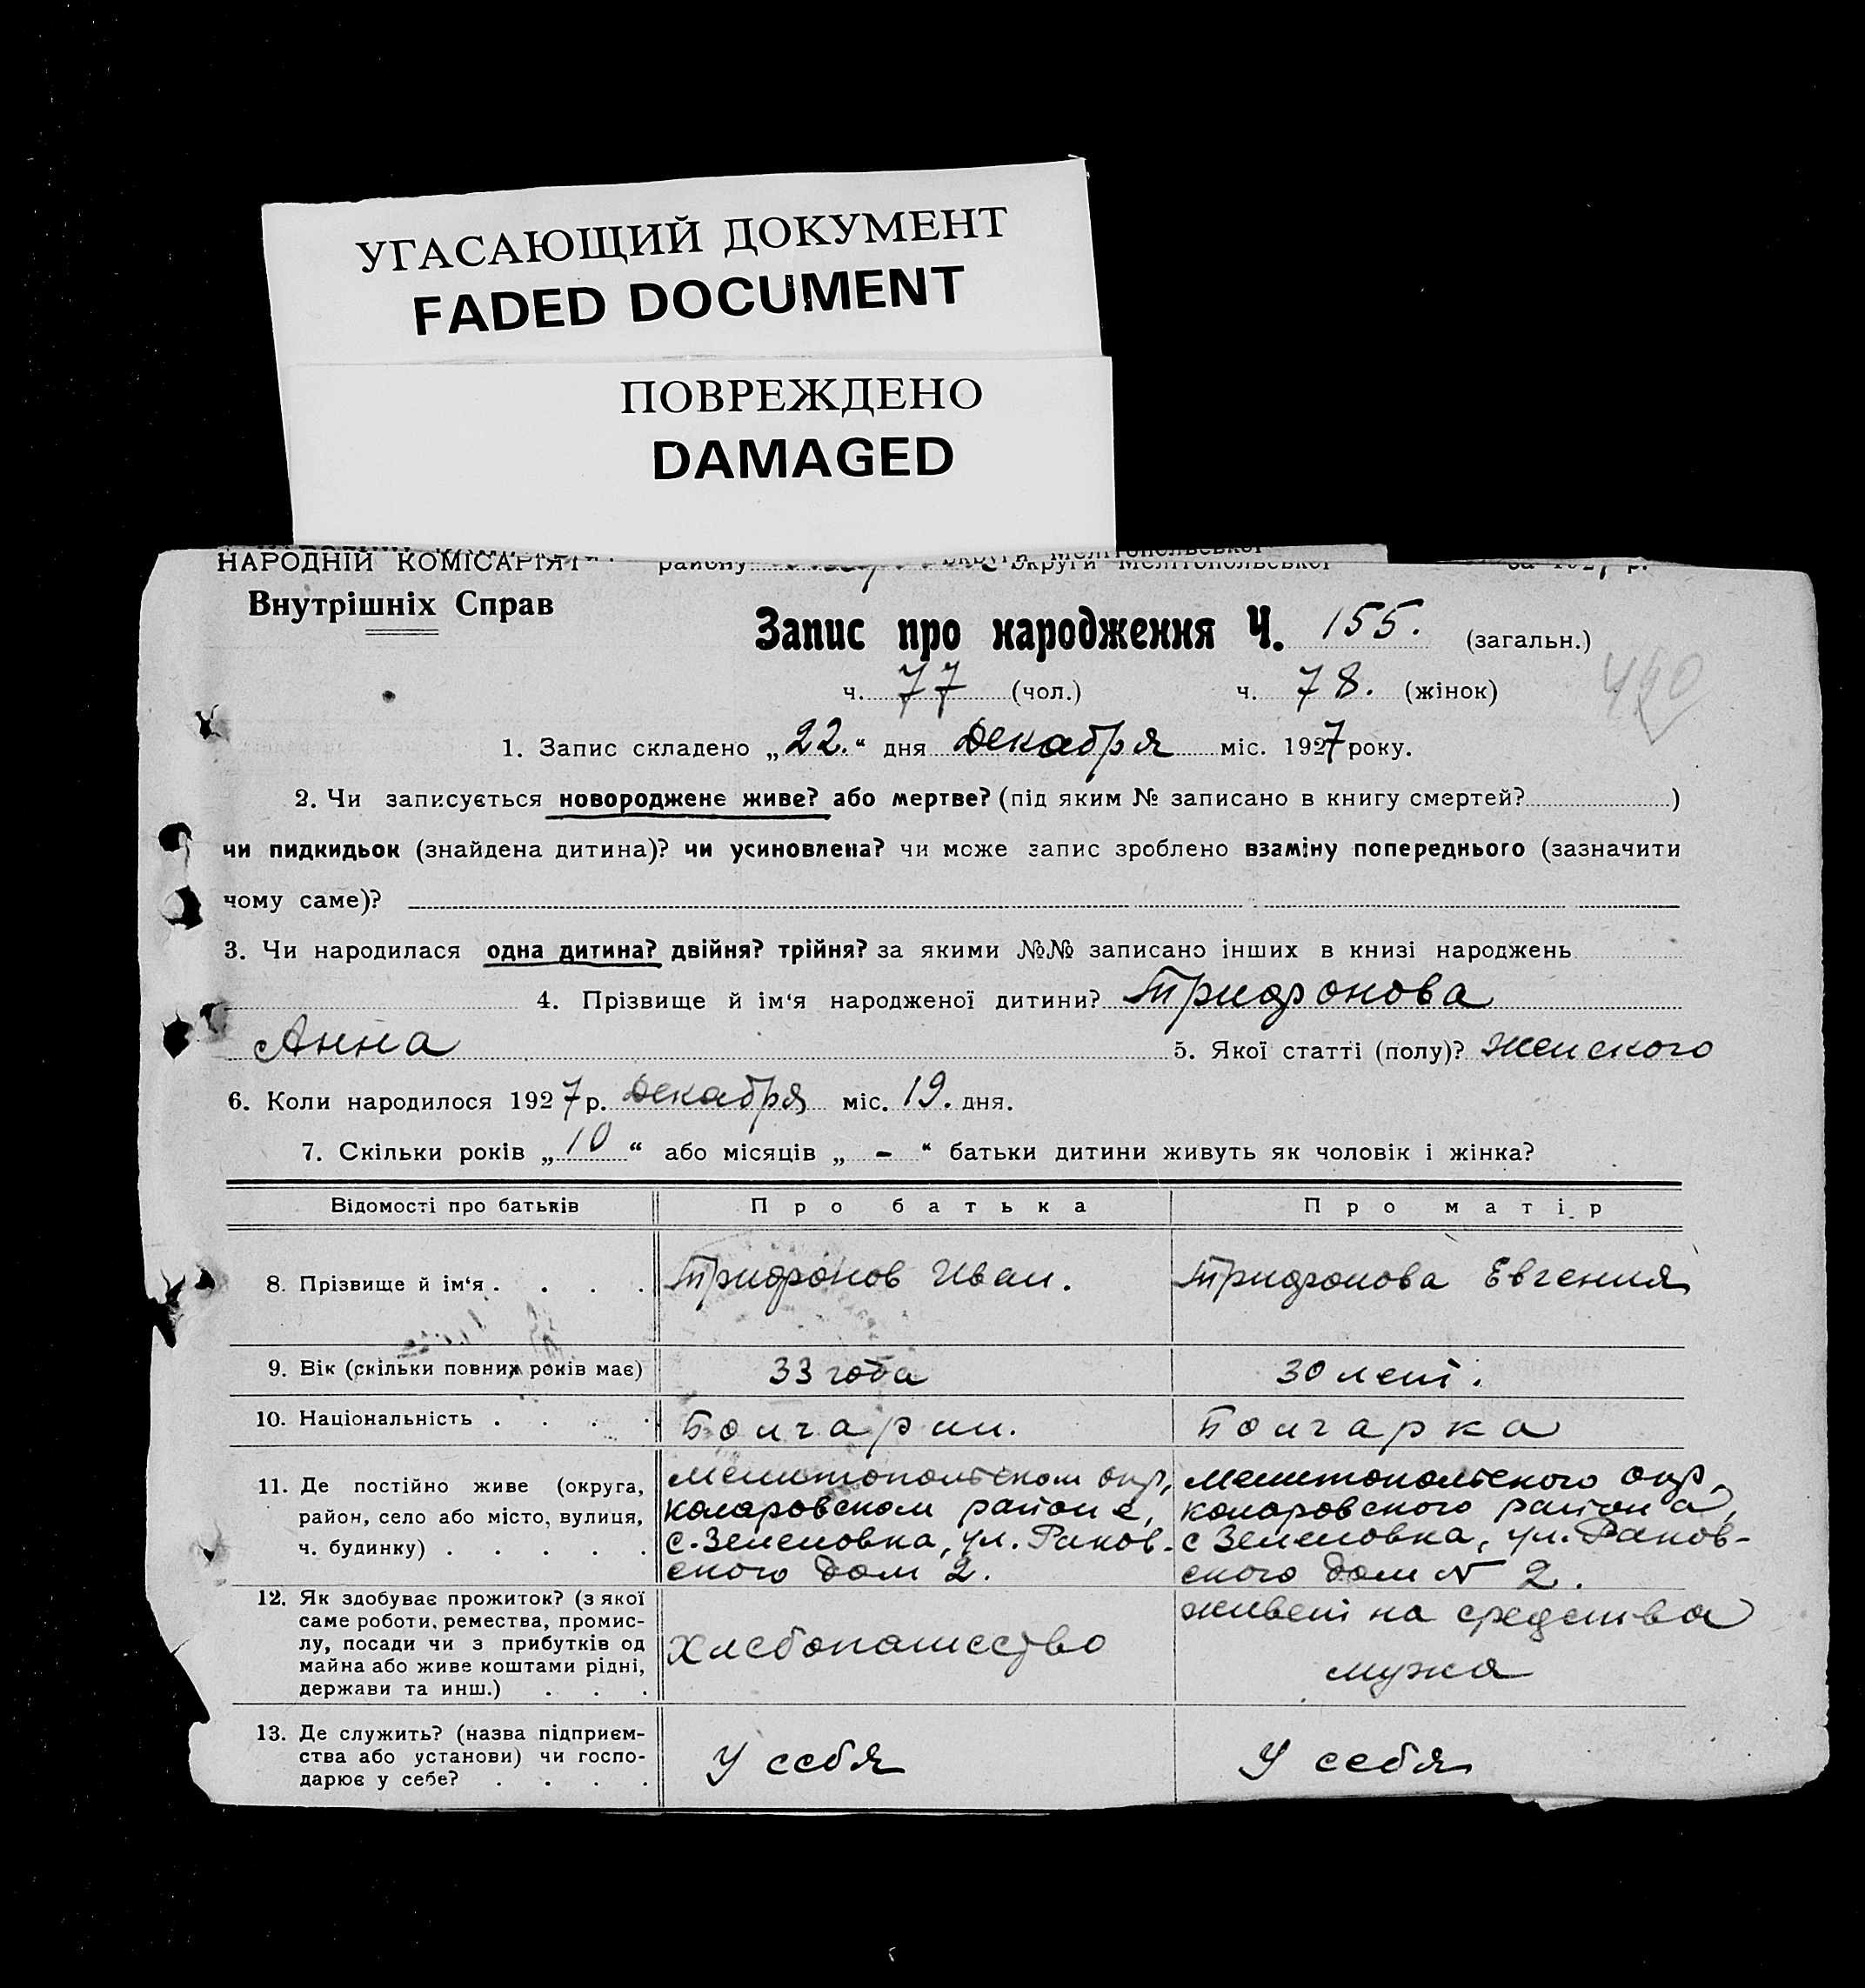 УГАСАЮЩИЙ ДОКУМЕНТ
FADED DOCUMENT
ПОВРЕЖДЕНО
DAMAGED
НАРОДНІЙ КОМІСАРІЯТ району округи Мелітопольської за 1927 р.
Внутрішніх Справ
Запис про народження Ч. 155. (загальн.)
ч. 77 (чол.) ч. 78. (жінок)
490
1. Запис складено „22.“ дня Декабря міс. 1927 року.
2. Чи записується новороджене живе? або мертве? (під яким № записано в книгу смертей? )
чи пидкидьок (знайдена дитина)? чи усиновлена? чи може запис зроблено взаміну попереднього (зазначити
чому саме)?
3. Чи народилася одна дитина? двійня? трійня? за якими №№ записано інших в книзі народжень
4. Прізвище й ім‘я народженої дитини? Трифонова
Анна 5. Якої статті (полу)? Женского
6. Коли народилося 1927 р. Декабря міс. 19. дня.
7. Скільки років „10“ або місяців „ - “ батьки дитини живуть як чоловік і жінка?
Відомості про батьків Про батька Про матір
8. Прізвище й ім‘я . . . . Трифонов Иван. Трифонова Евгения
9. Вік (скільки повних років має) 33 года 30 лет.
10. Національність . . . . Болгарин. Болгарка
11. Де постійно живе (округа, Мелитопольском окр, Мелитопольского окр,
район, село або місто, вулиця, коларовском районе, коларовского района,
ч. будинку) . . . . . с. Зеленовка, ул. Раков- с Зеленовка, ул. Раков-
ского дом 2. ского дом № 2.
12. Як здобуває прожиток? (з якої живет на средства
саме роботи, ремества, промис-
лу, посади чи з прибутків од хлебопашество
майна або живе коштами рідні, мужа
держави та инш.) . . .
13. Де служить? (назва підприєм-
ства або установи) чи госпо- У себя У себя
дарює у себе? . . . .